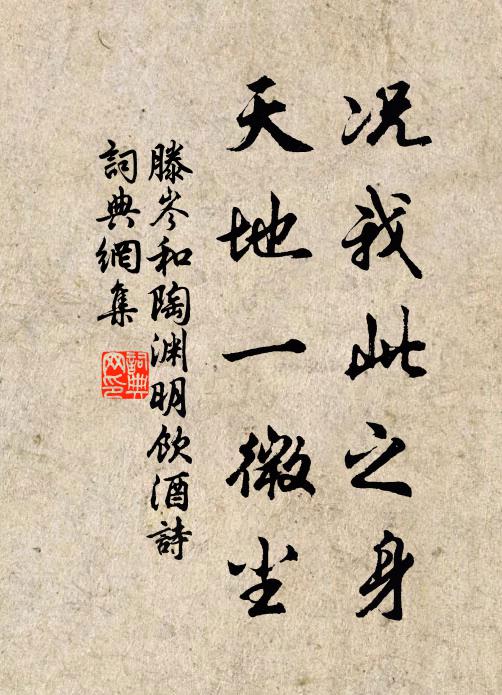 况我此之身
天地一微尘
滕岑和陶渊明饮酒詩
詞典網集
詞典網印